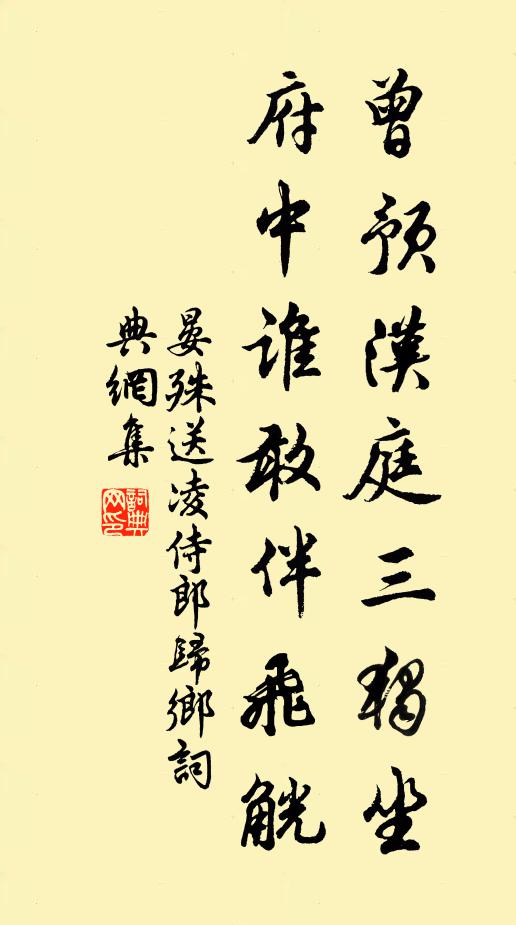 曾預漢庭三獨坐
府中誰敢伴飛觥
晏殊送凌侍郎歸鄉詞
典網集
詞典網印